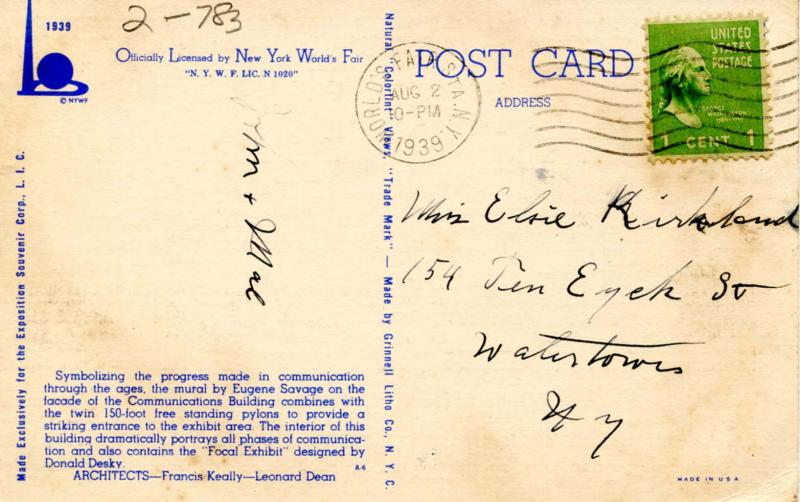 2-783
1939
© NYWF
Officially Licensed by New York World's Fair
"N. Y. W. F. LIC. N 1020"
John & Mae
Symbolizing the progress made in communication
through the ages, the mural by Eugene Savage on the
facade of the Communications Building combines with
the twin 150-foot free standing pylons to provide a
striking entrance to the exhibit area. The interior of this
building dramatically portrays all phases of communica-
tion and also contains the "Focal Exhibit" designed by
Donald Desky.
A-6
ARCHITECTS—Francis Keally—Leonard Dean
Made Exclusively for the Exposition Souvenir Corp., L. I. C.
Natural "Colortint" Views, "Trade Mark" — Made by Grinnell Litho Co., N. Y. C.
POST CARD
ADDRESS
WORLD'S FAIR STA. N.Y.
AUG 2
10-PM
1939
UNITED
STATES
POSTAGE
GEORGE
WASHINGTON
1789-1797
1 CENT 1
Miss Elsie Kirkland
154 Ten Eyck St
Watertown
N Y
MADE IN U S A